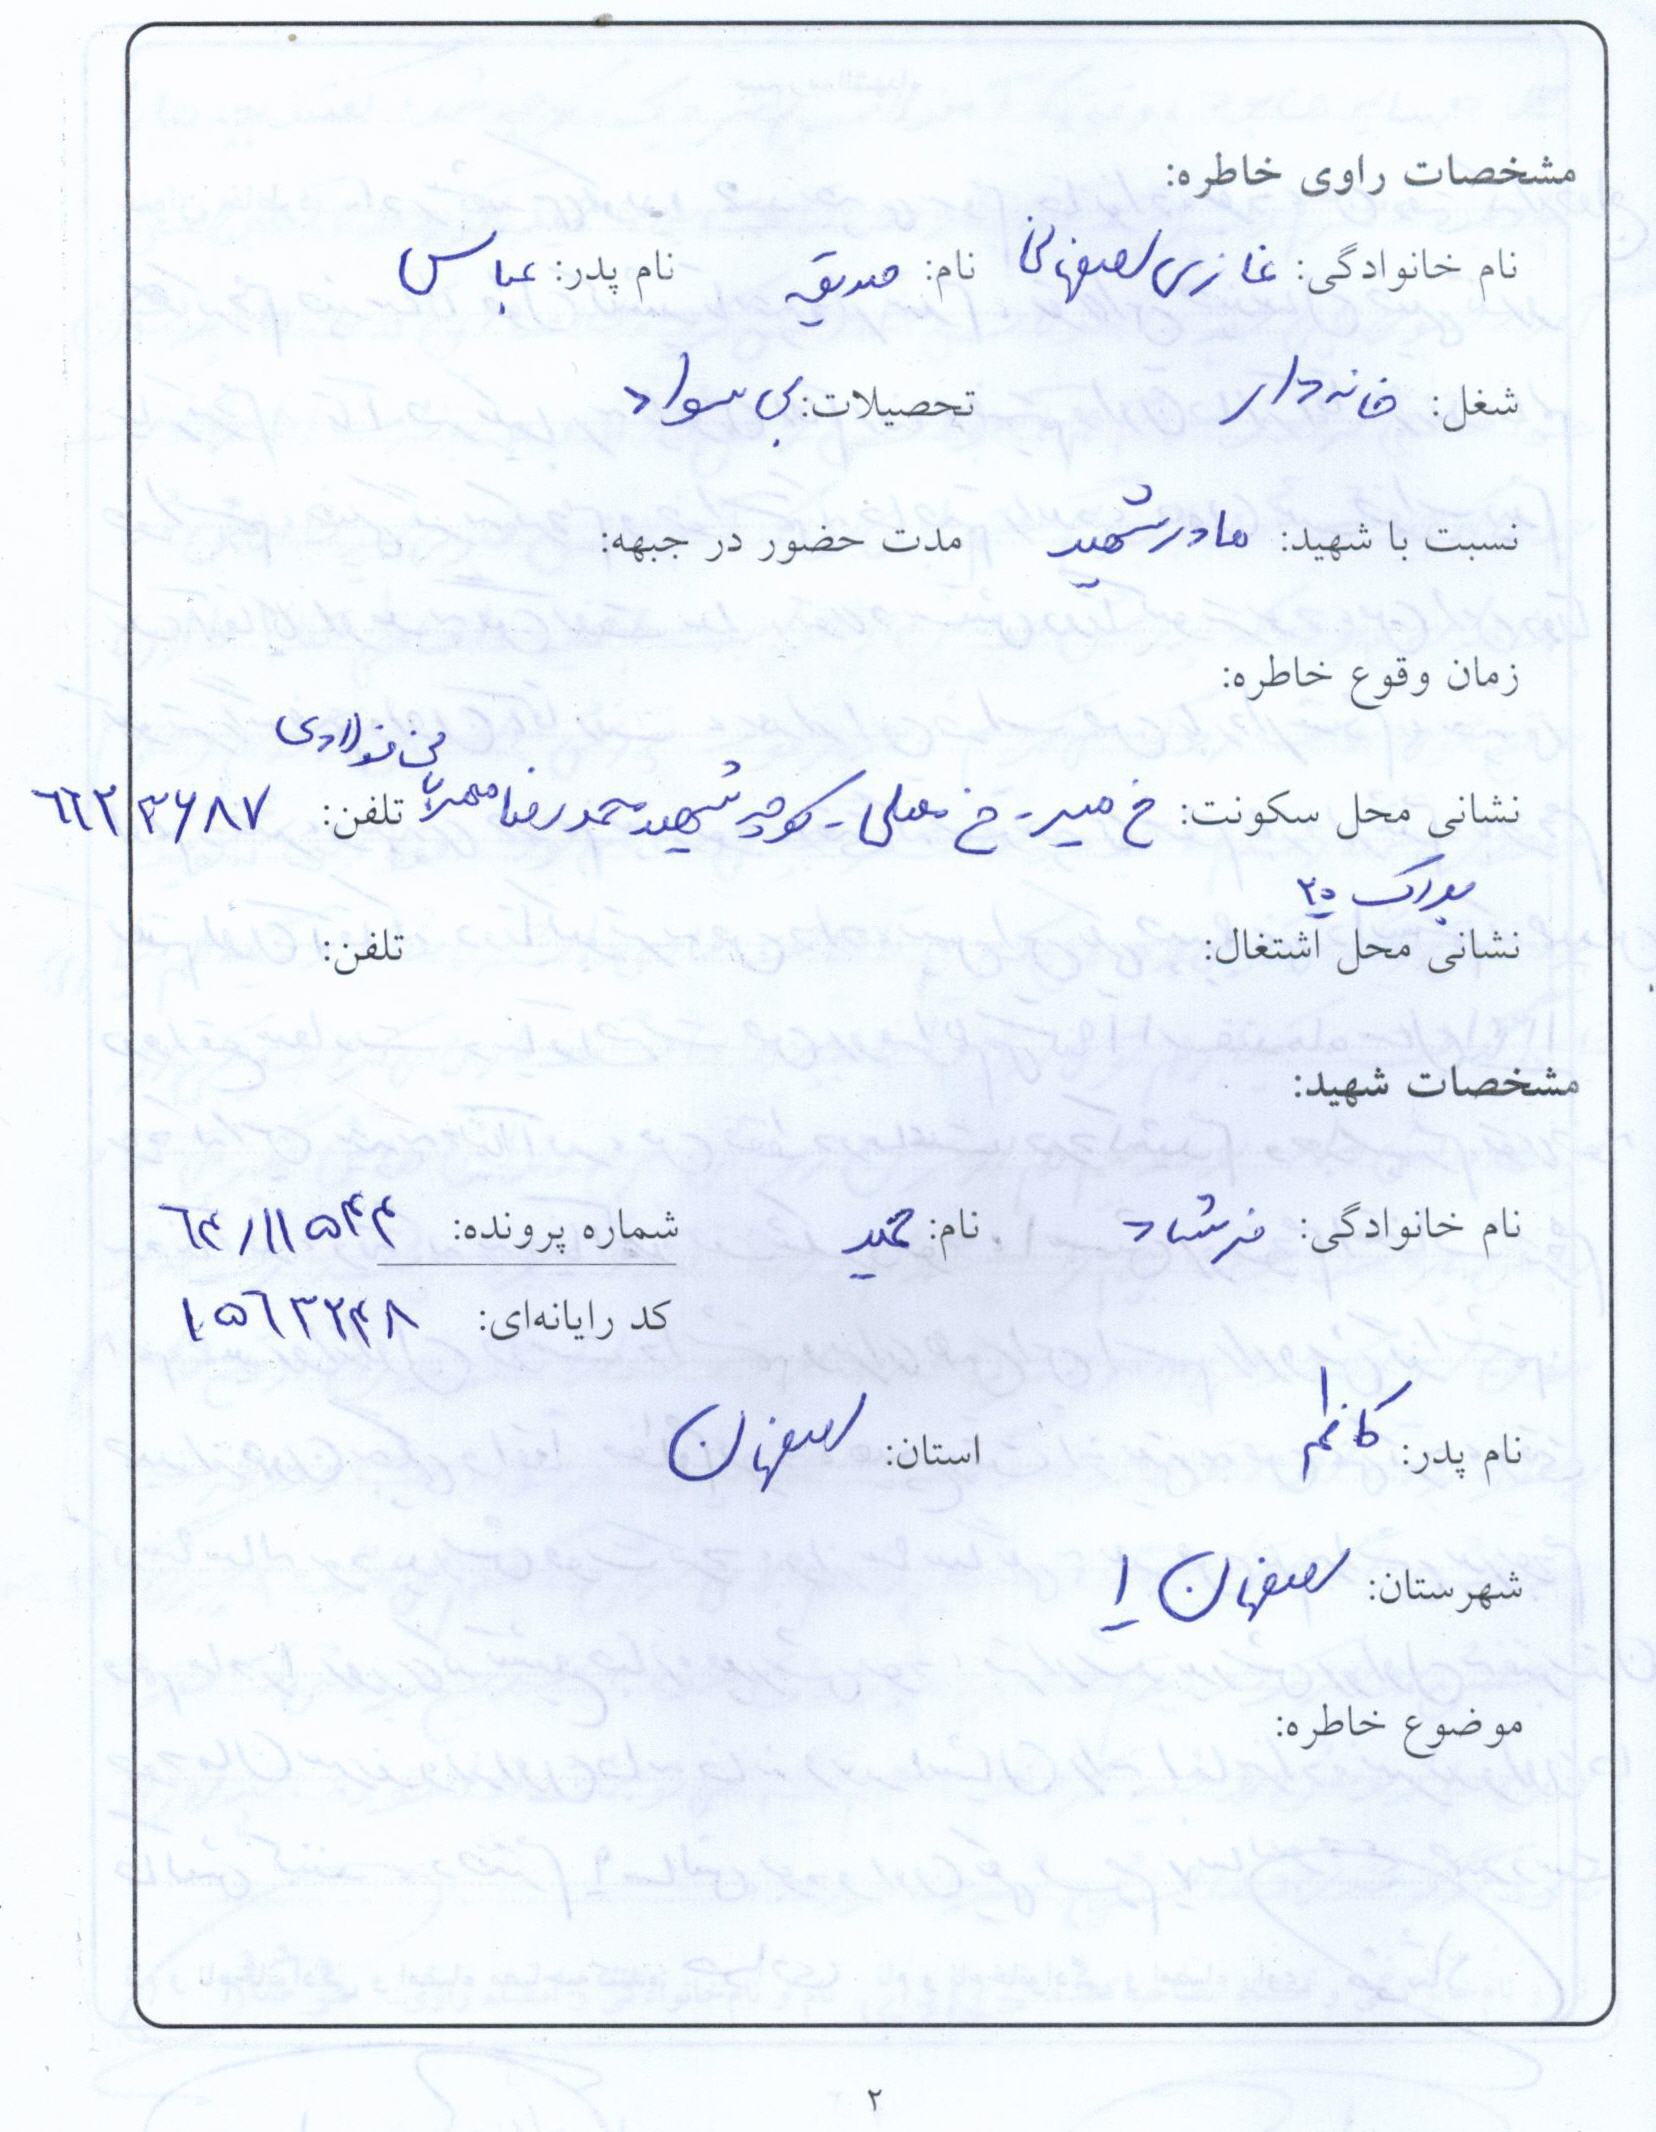 مشخصات راوی خاطره:
نام خانوادگی: غازی اصفهانی نام: صدیقه نام پدر: عباس
شغل: خانه دار تحصیلات: بی سواد
نسبت با شهید: مادر شهید مدت حضور در جبهه:
زمان وقوع خاطره:
نشانی محل سکونت: خ میر - خ معلی - کوچه شهید محمدرضا تلفن: ۶۶۲۳۶۸۷
پلاک ۲۰
نشانی محل اشتغال: تلفن:
مشخصات شهید:
نام خانوادگی: فرشاد نام: حمید شماره پرونده: ۶۴/۱۱۵۴۴
کد رایانه‌ای: ۱۵۶۳۲۴۸
نام پدر: کاظم استان: اصفهان
شهرستان: اصفهان ۱
موضوع خاطره:
۲